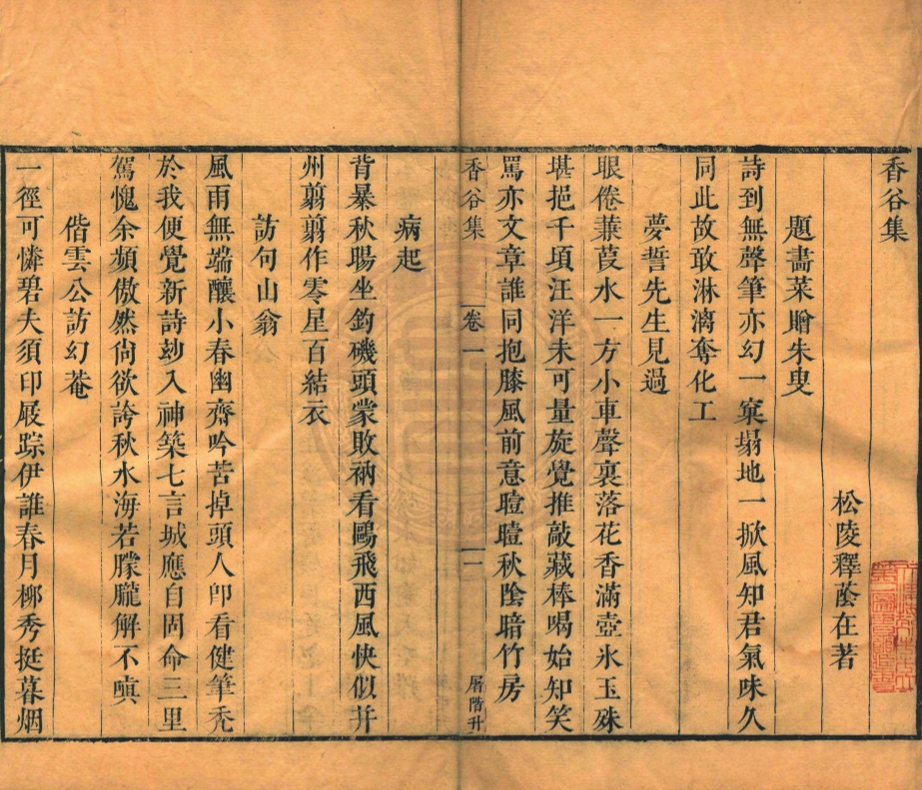 香谷集
松陵釋蔭在著
題畵菜贈朱叟
詩到無聲筆亦幻一窠塌地一掀風知君氣味久
同此故敢淋漓奪化工
夢誓先生見過
眼倦蒹葭水一方小車聲裏落花香滿壺氷玉殊
堪挹千頃汪洋未可量旋覺推敲藏棒喝始知笑
罵亦文章誰同抱膝風前意曀曀秋陰暗竹房
香谷集
卷一
一
層階升
病起
背暴秋暘坐釣磯頭蒙敗衲看鷗飛西風快似并
州翦翦作零星百結衣
訪句山翁
風雨無端釀小春幽齋吟苦掉頭人卽看健筆禿
於我便覺新詩玅入神築七言城應自固命三里
駕愧余頻傲然尙欲誇秋水海若朦朧解不嗔
偕雲公訪幻菴
一徑可憐碧夫須印屐踪伊誰春月柳秀挺暮烟